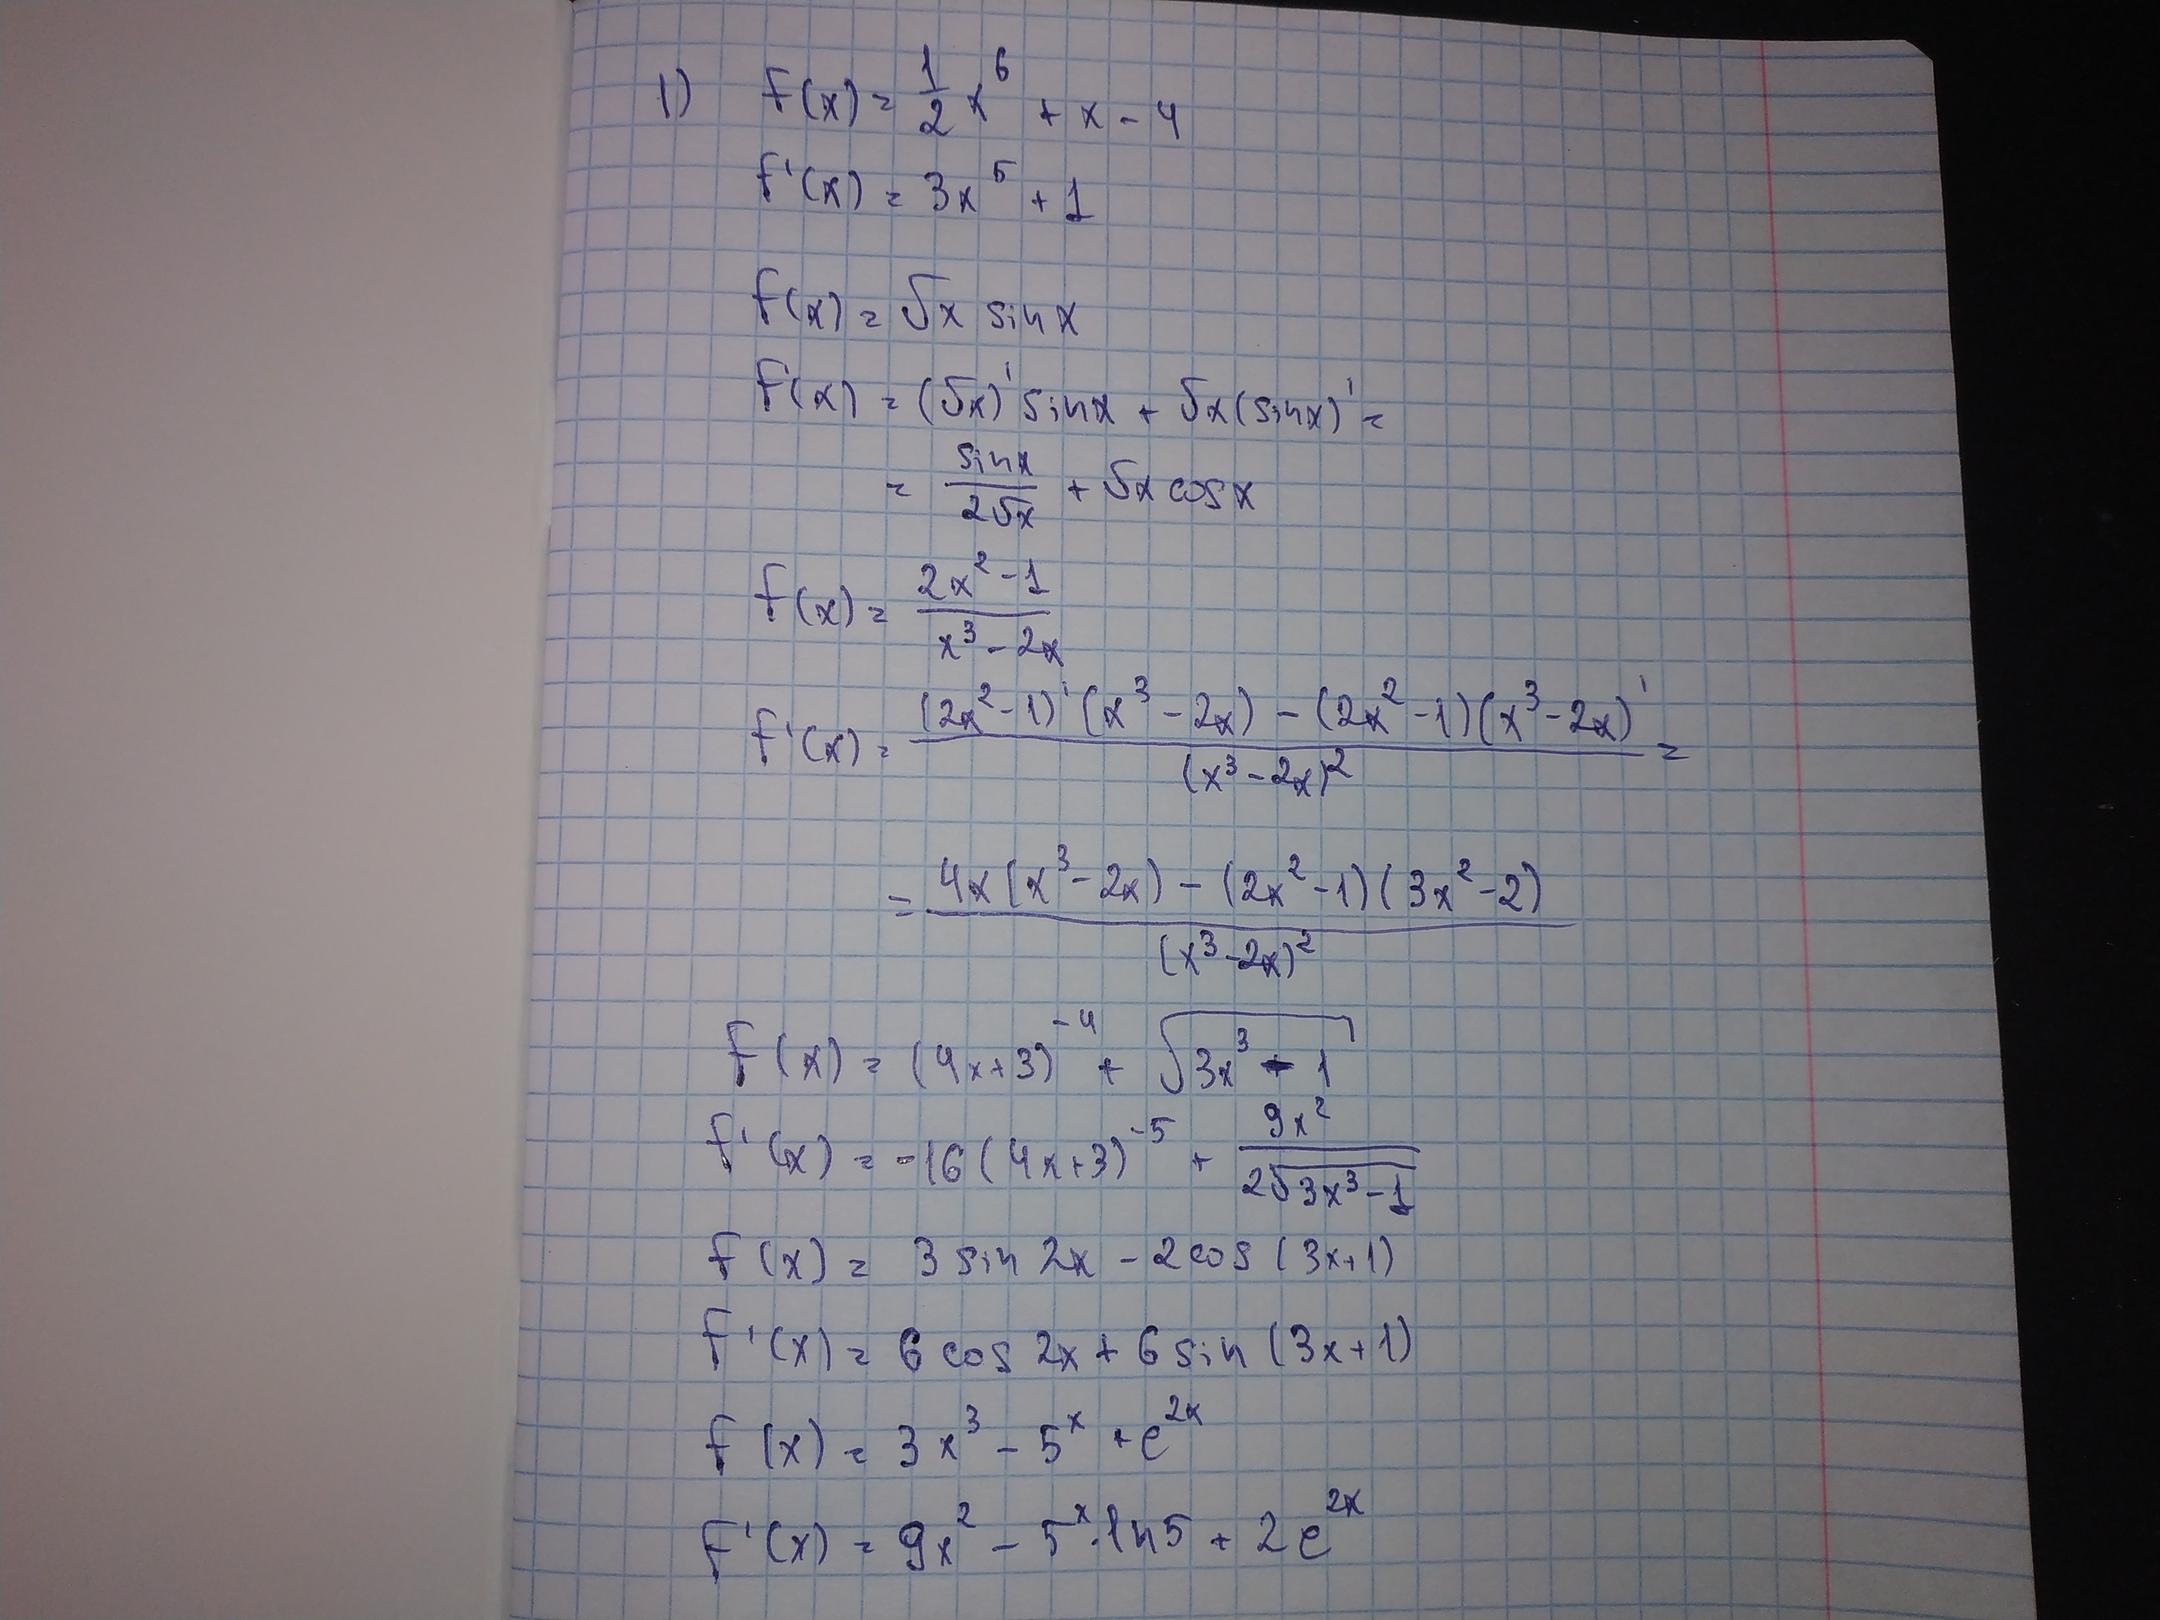 1) f(x) = 1/2 x^6 + x - 4
f'(x) = 3x^5 + 1
f(x) = √x sin x
f'(x) = (√x)' sin x + √x (sin x)' =
= sin x / 2√x + √x cos x
f(x) = (2x^2 - 1) / (x^3 - 2x)
f'(x) = ((2x^2 - 1)' (x^3 - 2x) - (2x^2 - 1)(x^3 - 2x)') / (x^3 - 2x)^2 =
= (4x(x^3 - 2x) - (2x^2 - 1)(3x^2 - 2)) / (x^3 - 2x)^2
f(x) = (4x+3)^-4 + √(3x^3 - 1)
f'(x) = -16(4x+3)^-5 + 9x^2 / 2√(3x^3 - 1)
f(x) = 3 sin 2x - 2 cos (3x+1)
f'(x) = 6 cos 2x + 6 sin (3x+1)
f(x) = 3x^3 - 5^x + e^2x
f'(x) = 9x^2 - 5^x · ln 5 + 2e^2x